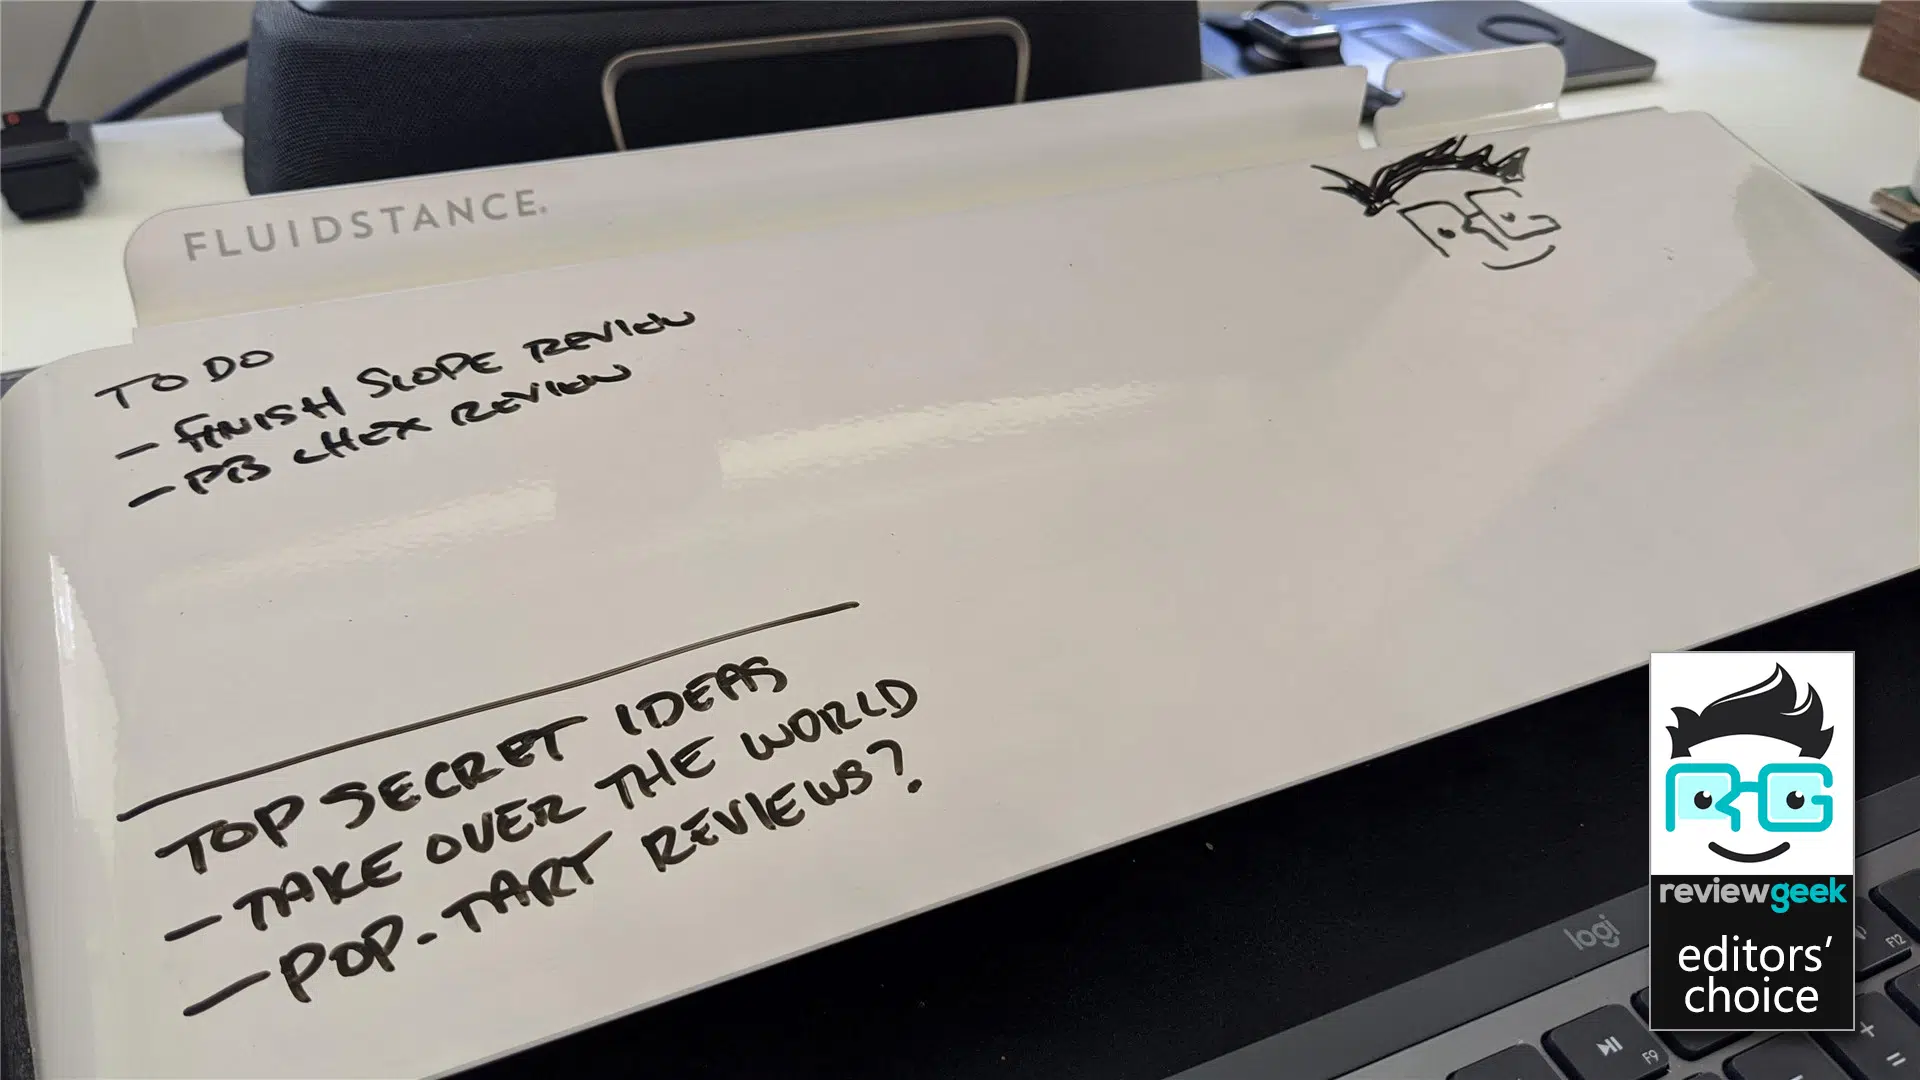 FLUIDSTANCE®
TO DO
- FINISH SLOPE REVIEW
- PB CHEX REVIEW
TOP SECRET IDEAS
- TAKE OVER THE WORLD
- POP-TART REVIEWS?
RG
RG
reviewgeek
editors'
choice
logi
F12
F9
+
=